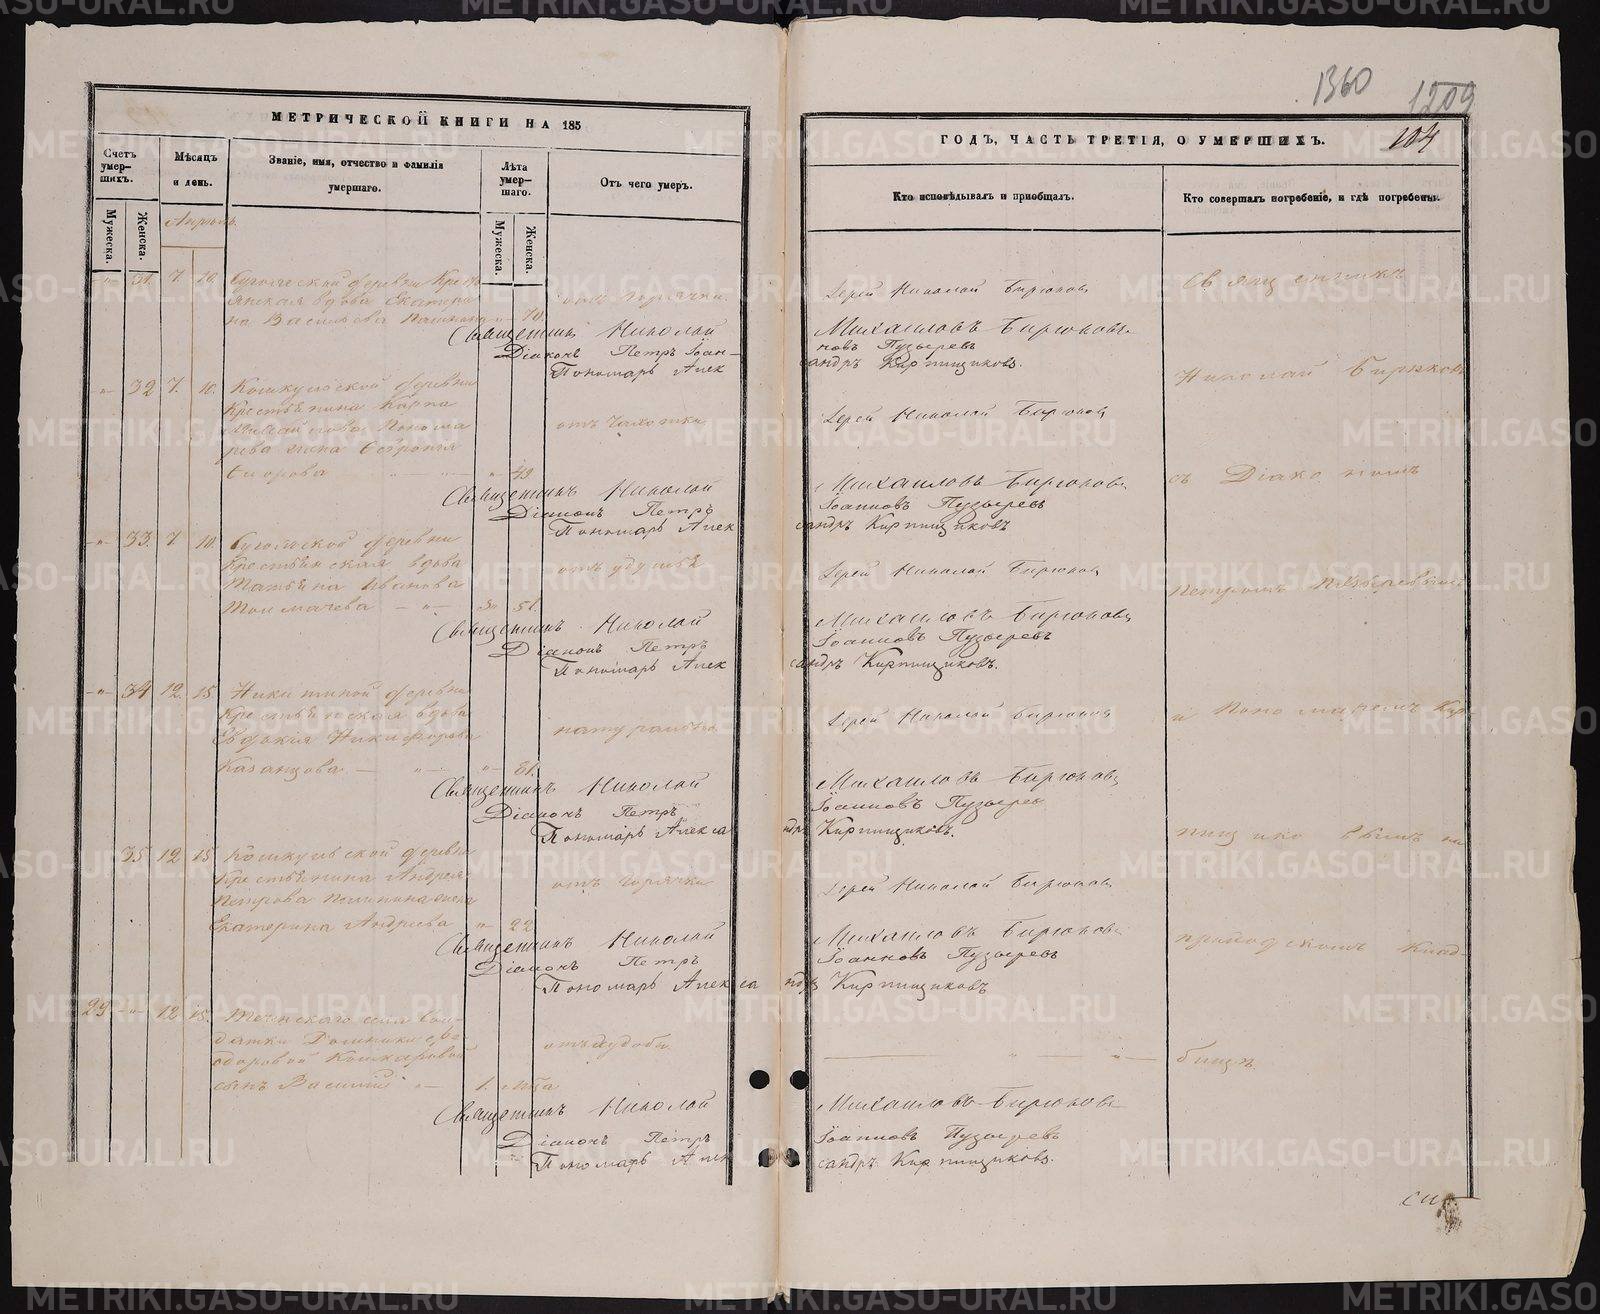 METRIKI.GASO-URAL.RU
1360
1209
104
МЕТРИЧЕСКОЙ КНИГИ НА 185
ГОДЪ, ЧАСТЬ ТРЕТІЯ, О УМЕРШИХЪ.
Счетъ умер-
шихъ.
Мужеска.
Женска.
Мѣсяцъ
и день.
Званіе, имя, отчество и фамилія
умершаго.
Лѣта
умер-
шаго.
Мужеска.
Женска.
Отъ чего умеръ.
Кто исповѣдывалъ и пріобщалъ.
Кто совершалъ погребеніе, и гдѣ погребены.
Апрѣль
31. 7. 10.
вдова Екатери
на Васильева 70.
отъ горячки
Іерей Николай Бирюковъ
Священникъ Николай Михаиловъ Бирюковъ
Діаконъ Петръ Іоан-
новъ Пузыревъ
Пономарь Алек
сандръ Кирпищиковъ.
32 7. 10. Кошкульской деревни
Крестьянина Карпа
Понома
рева жена
49
отъ чахотки
Іерей Николай Бирюковъ
Священникъ Николай Михаиловъ Бирюковъ
Діаконъ Петръ Іоанновъ Пузыревъ
Пономарь Алек
сандръ Кирпищиковъ
33. 7. 10. деревни
Крестьянская вдова
Татьяна Иванова
Толмачева 51.
отъ удушья
Іерей Николай Бирюковъ
Священникъ Николай Михаиловъ Бирюковъ
Діаконъ Петръ Іоанновъ Пузыревъ
Пономарь Алек
сандръ Кирпищиковъ.
34 12. 15. Никитиной деревни
Крестьянская вдова
Евдокія Никифорова
Казанцова 81.
натурально
Іерей Николай Бирюковъ
Священникъ Николай Михаиловъ Бирюковъ
Діаконъ Петръ Іоанновъ Пузыревъ
Пономарь Алекса
ндръ Кирпищиковъ.
35 12 15 Кошкульской деревни
Крестьянина Андрея
Петрова жена
Екатерина Андреева 22
отъ горячки
Іерей Николай Бирюковъ
Священникъ Николай Михаиловъ Бирюковъ
Діаконъ Петръ Іоанновъ Пузыревъ
Пономарь Алекса
ндръ Кирпищиковъ
29 12 15. Теченскаго села сол-
датки Домники Фе-
доровой Кошкаровой
сынъ Василій 1. м-ца
отъ худобы
Священникъ Николай Михаиловъ Бирюковъ
Діаконъ Петръ Іоанновъ Пузыревъ
Пономарь Алек
сандръ Кирпищиковъ.
Священникъ
Николай Бирюковъ
съ Діакономъ
Петромъ Пузыревымъ
и Пономаремъ Кир
пищиковымъ на
приходскомъ клад-
бищѣ.